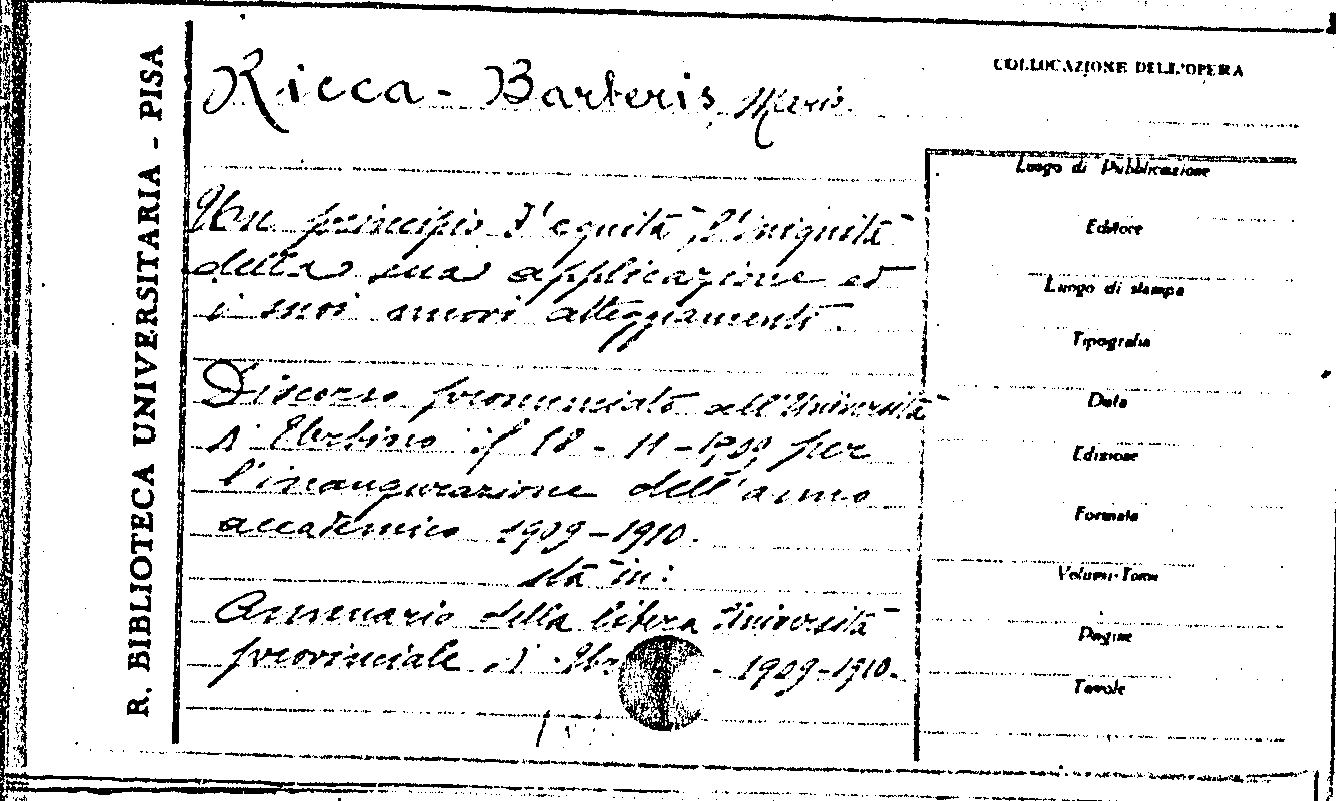 R. BIBLIOTECA UNIVERSITARIA - PISA
Ricca - Barberis, Mario.
Un principio d'equità, l'iniquità
della sua applicazione ed
i suoi nuovi atteggiamenti.
Discorso pronunciato all'Università
d'Urbino il 18 - 11 - 1909 per
l'inaugurazione dell'anno
accademico 1909-1910.
sta in:
Annuario della libera Università
provinciale d' 1909-1910.
COLLOCAZIONE DELL'OPERA
Luogo di Pubblicazione
Editore
Luogo di stampa
Tipografia
Data
Edizione
Formato
Volumi-Tomi
Pagine
Tavole